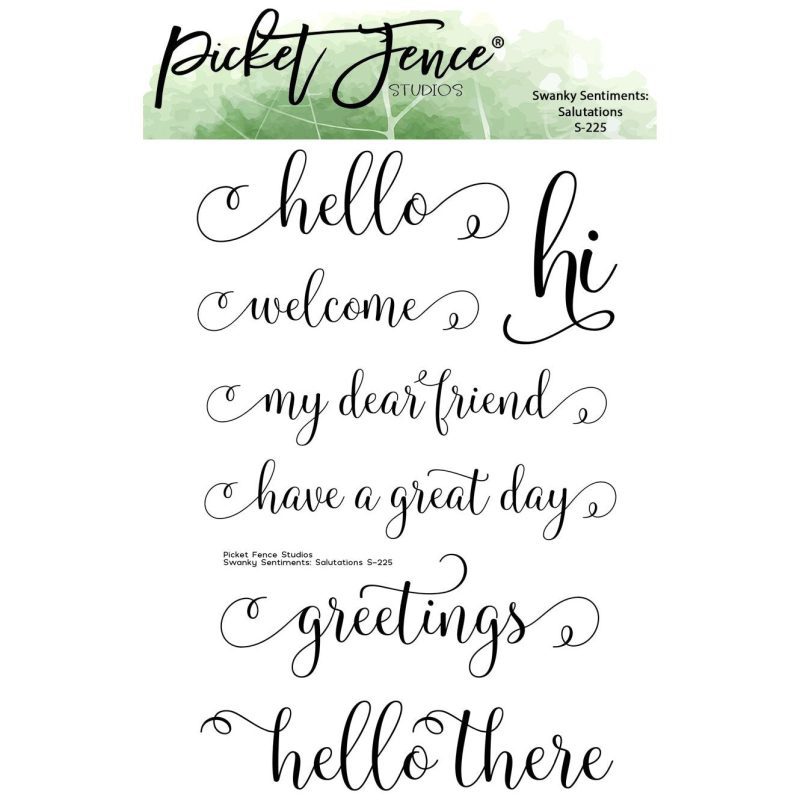 Picket Fence®
STUDIOS
Swanky Sentiments:
Salutations
S-225
hello
hi
welcome
my dear friend
have a great day
Picket Fence Studios
Swanky Sentiments: Salutations S-225
greetings
hello there